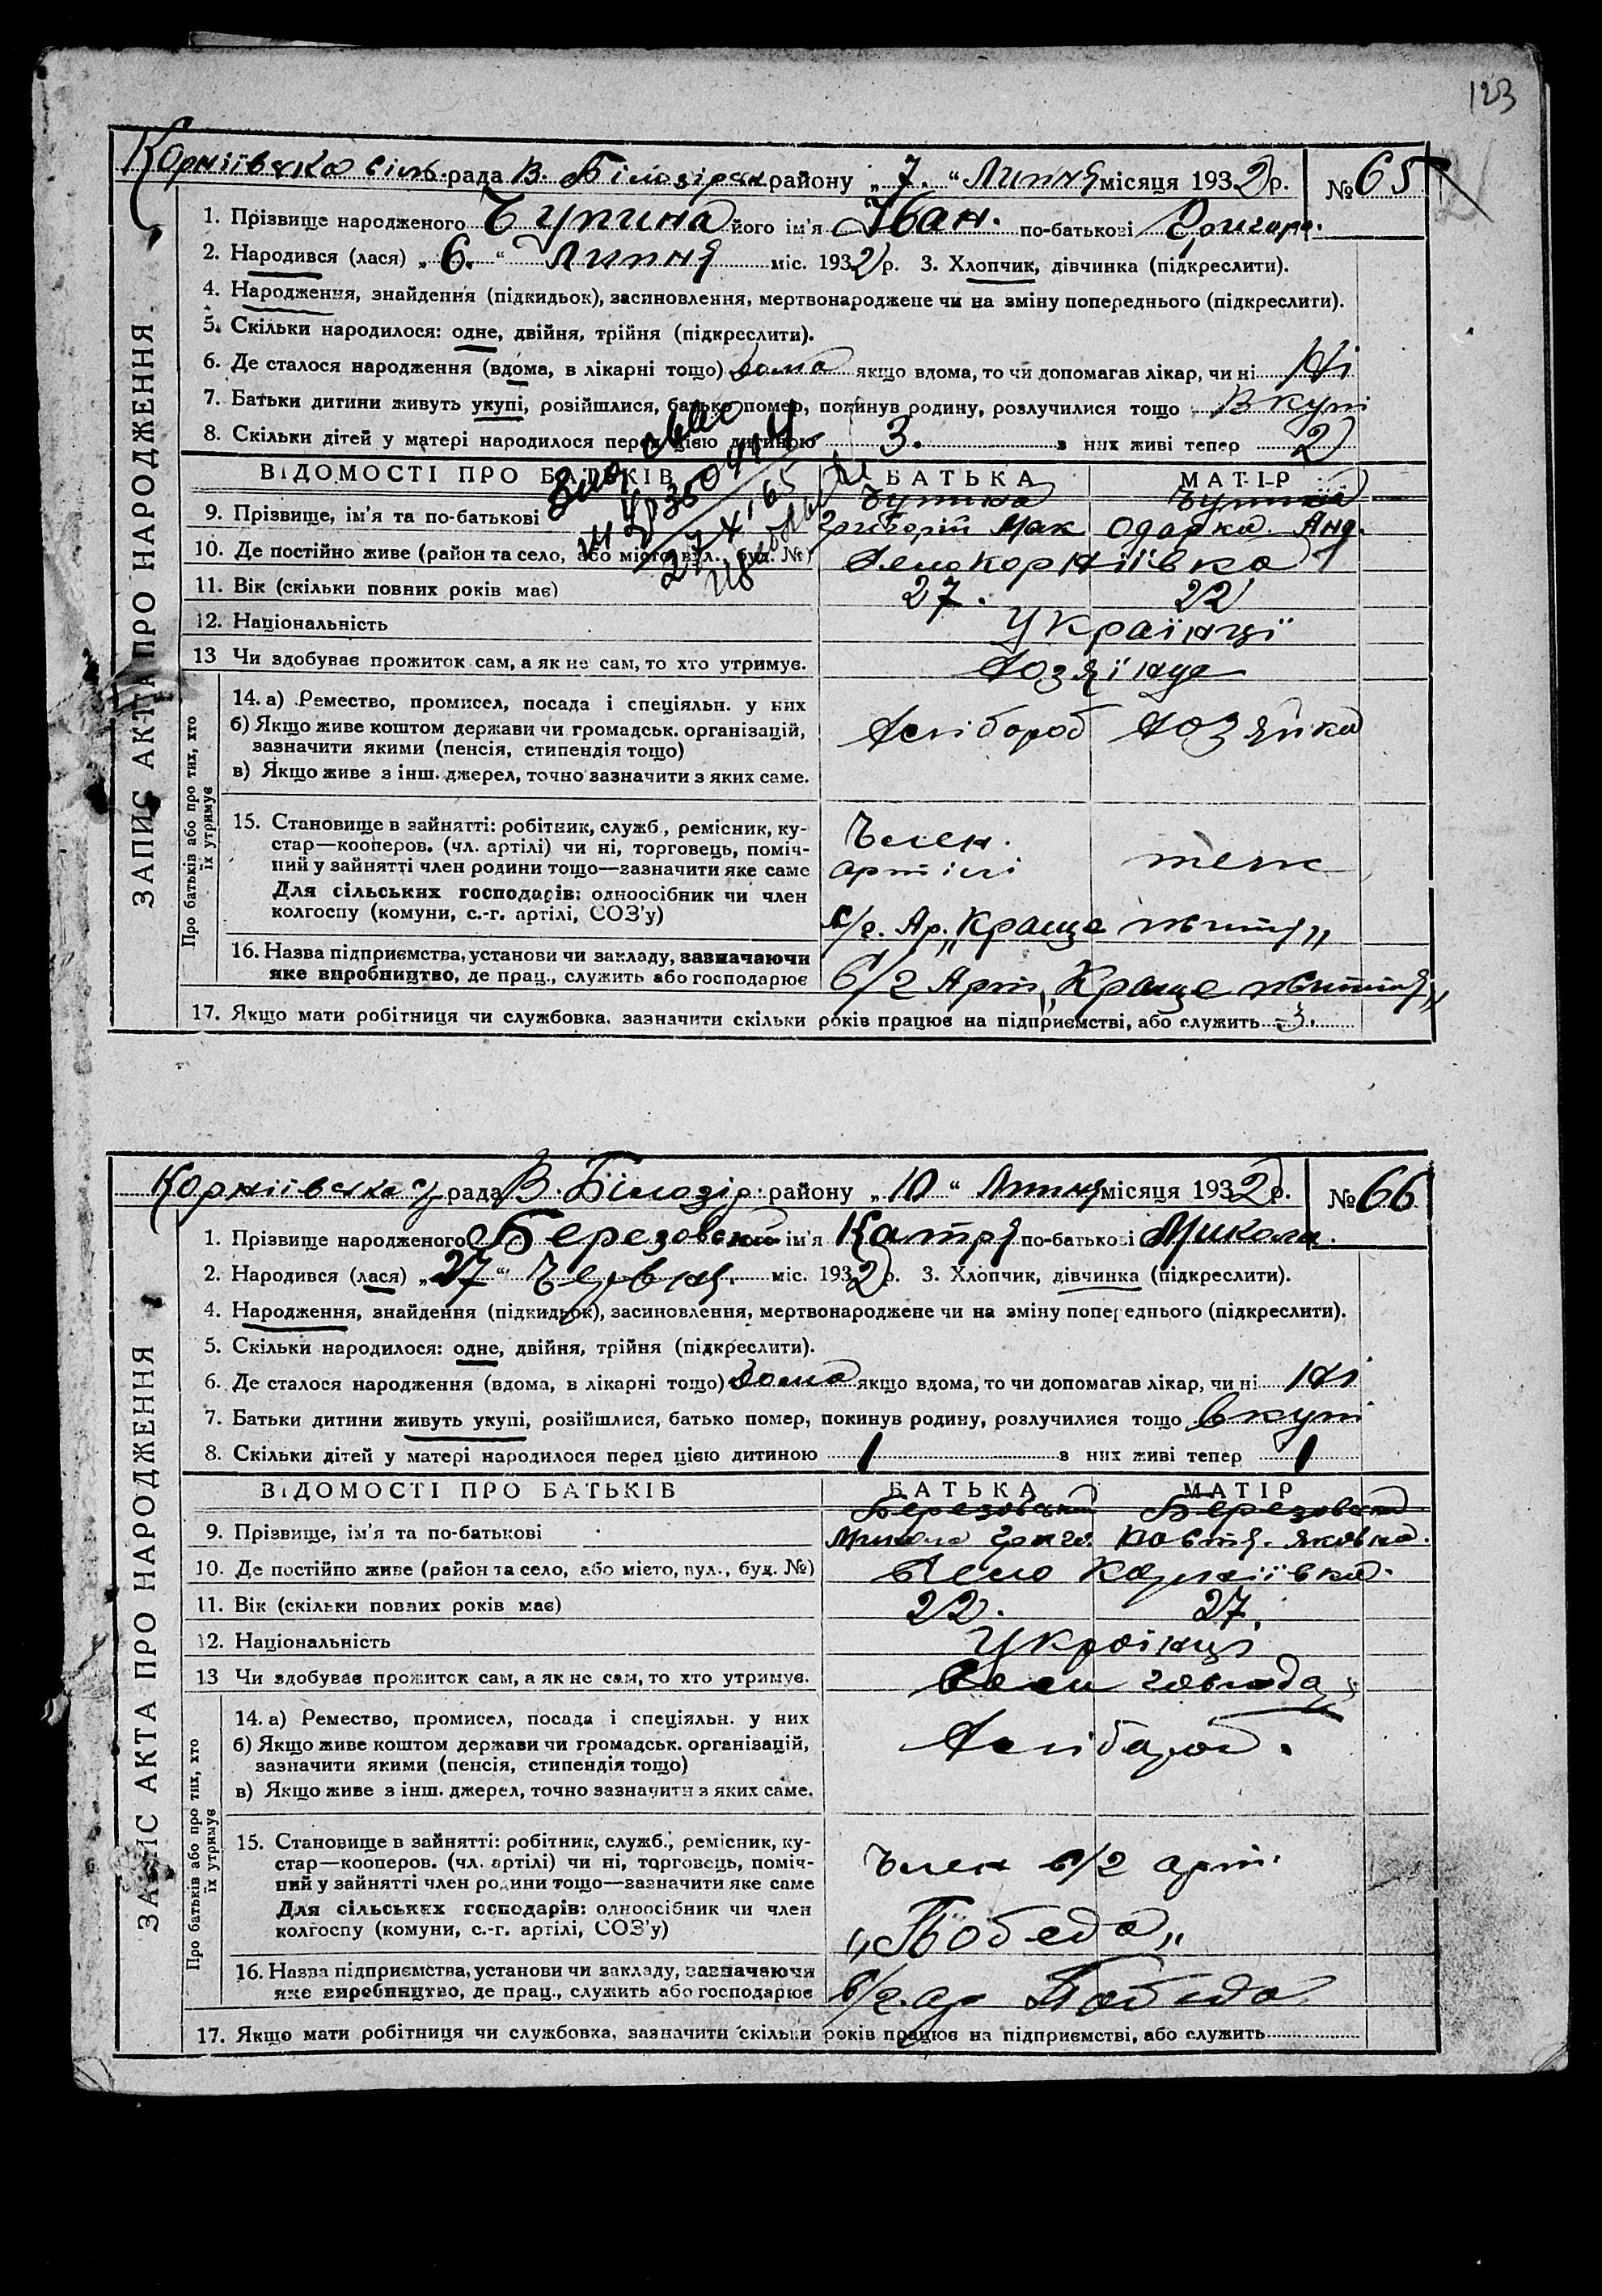 123
Корніївська сіль. рада В. Білозірськ району „7.“ Липня місяця 1932 р. № 65
ЗАПИС АКТА ПРО НАРОДЖЕННЯ
1. Прізвище народженого Чупина його ім'я Іван. по-батькові Григорі.
2. Народився (лася) „6.“ Липня міс. 1932 р. 3. Хлопчик, дівчинка (підкреслити).
4. Народження, знайдення (підкидьок), засиновлення, мертвонароджене чи на зміну попереднього (підкреслити).
5. Скільки народилося: одне, двійня, трійня (підкреслити).
6. Де сталося народження (вдома, в лікарні тощо) Дома якщо вдома, то чи допомагав лікар, чи ні Ні
7. Батьки дитини живуть укупі, розійшлися, батько помер, покинув родину, розлучилися тощо Вкупі
8. Скільки дітей у матері народилося перед цією дитиною 3. з них живі тепер 2
ВІДОМОСТІ ПРО БАТЬКІВ БАТЬКА МАТІР
9. Прізвище, ім'я та по-батькові Чупина Григорій Мак Чупина Одарка Анд.
10. Де постійно живе (район та село, або місто, вул., буд. №) Село Корніївка
11. Вік (скільки повних років має) 27. 22
12. Національність Українці
13 Чи здобуває прожиток сам, а як не сам, то хто утримує. Хозяїнує
Про батьків або про тих, хто їх утримує
14. а) Ремество, промисел, посада і спеціяльн. у них
б) Якщо живе коштом держави чи громадськ. організацій,
зазначити якими (пенсія, стипендія тощо) Хлібороб Хозяйка
в) Якщо живе з інш. джерел, точно зазначити з яких саме.
15. Становище в зайнятті: робітник, служб., ремісник, ку-
стар—кооперов. (чл. артілі) чи ні, торговець, поміч- Член.
ний у зайнятті член родини тощо—зазначити яке саме артілі теж
Для сільських господарів: одноосібник чи член
колгоспу (комуни, с.-г. артілі, СОЗ'у) С/г. Ар. „Краще життя„
16. Назва підприємства, установи чи закладу, зазначаючи
яке виробництво, де прац., служить або господарює С/г Арт „Краще життя„
17. Якщо мати робітниця чи службовка, зазначити скільки років працює на підприємстві, або служить 3.
Корніївська с/р рада В. Білозір. району „10“ Липня місяця 1932 р. № 66
ЗАПИС АКТА ПРО НАРОДЖЕННЯ
1. Прізвище народженого Березовськ ім'я Катря по-батькові Микола.
2. Народився (лася) „27“ Червня. міс. 1932 р. 3. Хлопчик, дівчинка (підкреслити).
4. Народження, знайдення (підкидьок), засиновлення, мертвонароджене чи на зміну попереднього (підкреслити).
5. Скільки народилося: одне, двійня, трійня (підкреслити).
6. Де сталося народження (вдома, в лікарні тощо) Дома якщо вдома, то чи допомагав лікар, чи ні Ні
7. Батьки дитини живуть укупі, розійшлися, батько помер, покинув родину, розлучилися тощо Вкупі
8. Скільки дітей у матері народилося перед цією дитиною 1 з них живі тепер 1
ВІДОМОСТІ ПРО БАТЬКІВ БАТЬКА МАТІР
9. Прізвище, ім'я та по-батькові Березовський Микола Григ. Березовська Настя. Яковна.
10. Де постійно живе (район та село, або місто, вул., буд. №) Село Корніївка.
11. Вік (скільки повних років має) 22. 27.
12. Національність Українці
13 Чи здобуває прожиток сам, а як не сам, то хто утримує.
Про батьків або про тих, хто їх утримує
14. а) Ремество, промисел, посада і спеціяльн. у них
б) Якщо живе коштом держави чи громадськ. організацій,
зазначити якими (пенсія, стипендія тощо) Хлібороб.
в) Якщо живе з інш. джерел, точно зазначити з яких саме.
15. Становище в зайнятті: робітник, служб., ремісник, ку-
стар—кооперов. (чл. артілі) чи ні, торговець, поміч- Член с/г арт.
ний у зайнятті член родини тощо—зазначити яке саме
Для сільських господарів: одноосібник чи член
колгоспу (комуни, с.-г. артілі, СОЗ'у) „Победа„
16. Назва підприємства, установи чи закладу, зазначаючи
яке виробництво, де прац., служить або господарює С/г. ар Победа
17. Якщо мати робітниця чи службовка, зазначити скільки років працює на підприємстві, або служить